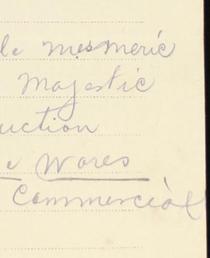 le mesmeric
Majestic
uction
e Wares
Commercial